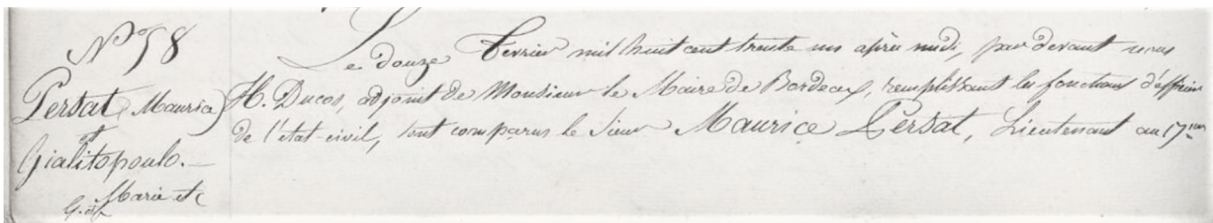 N° 58
Persat (Maurice)
et
Gialitopoulo.
Marie etc
Le douze fevrier mil huit cent trente un après midi, par devant nous
H. Ducos, adjoint de Monsieur le Maire de Bordeaux, remplissant les fonctions d'officier
de l'état-civil, sont comparus le Sieur Maurice Persat, Lieutenant au 17me